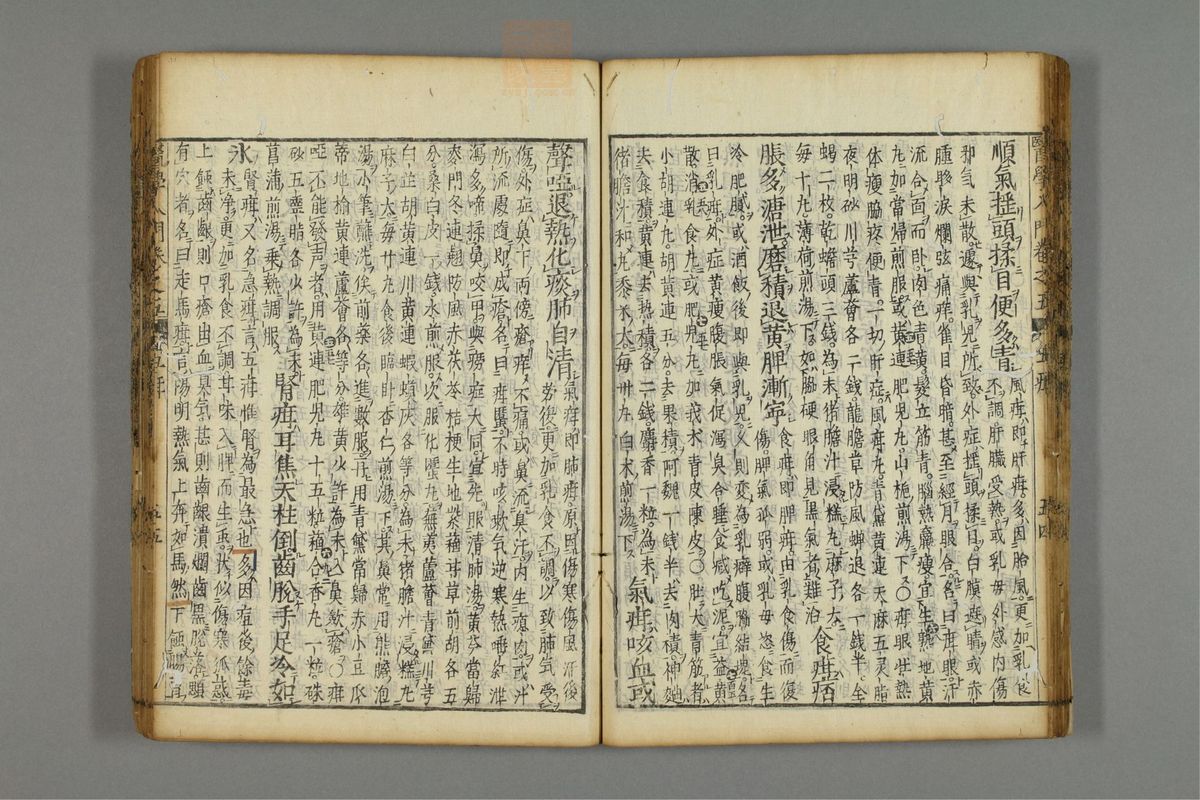 醫學入門卷之五
五四
順氣搖頭揉目便多青
風疳即肝疳多因胎風更加乳食
不調肝臟受熱或乳母外感內傷
邪氣未散遽與乳兒所致外症搖頭揉目白膜遮睛或赤
腫眵淚爛弦痛痒雀目昏暗甚至經月眼合名曰疳眼汗
流合面而卧肉色青黃髮立筋青腦熱羸瘦宜生熟地黃
丸加當歸煎服或黃連肥兒丸山梔煎湯下〇疳眼出熱
体瘦脇疼便青一切肝症風疳丸青黛黃連天麻五灵脂
夜明砂川芎蘆薈各二錢龍膽草防風蟬退各一錢半全
蝎二枚乾蟾頭三錢為末猪膽汁浸糕丸麻子大
每十丸薄荷煎湯下如腦硬眼角見黑氣者難治
食疳病
脹多溏泄磨積退黃脾漸寧
食疳即脾疳由乳食傷而後
傷脾氣孤弱或乳母恣食生
冷肥膩或酒飯後即與乳兒久則変為乳癖腹脇結塊名
曰乳疳外症黃瘦腹脹氣促瀉臭合睡食減吃泥宜益黃
散消乳食丸或肥兒丸加莪朮青皮陳皮〇肚大青筋者
小胡連丸胡黃連五分去果積阿魏一錢半去肉積神麯
去食積黃連去熱積各二錢麝香一粒為末
猪膽汁和丸黍米大每廾丸白朮煎湯下
氣疳咳血或
聲啞退熱化痰肺自清
氣疳即肺疳原因傷寒傷風汗後
勞復更加乳食不調以致肺氣受
傷外症鼻下兩傍瘡痒不痛或鼻流臭汁內生瘜肉或汁
所流處隨即成瘡名曰疳䘌不時咳嗽氣逆寒熱唾紅泄
瀉多啼揉鼻咬甲與勞症大同宜先服清肺湯黃芩當歸
麥門冬連翹防風赤茯苓桔梗生地紫蘇甘草前胡各五
分桑白皮一錢水煎服次服化䘌丸蕪荑蘆薈青黛川芎
白芷胡黃連川黃連蝦蟆灰各等分為末猪膽汁浸糕丸
麻子大每廾丸食後臨卧杏仁煎湯下其鼻常用熊膽泡
湯小筆蘸洗俟前藥各進數服卻用青黛當歸赤小豆瓜
蒂地榆黃連蘆薈各等分雄黃少許為末入鼻歛瘡〇疳
啞不能發声者用黃連肥兒丸十五粒蘇合香丸一粒硃
砂五靈脂各少許為末
菖蒲煎湯乗熱調服
腎疳耳焦天柱倒齒脫手足冷如
氷
腎疳又名急疳言五疳惟腎為最急也多因疸後餘毒
未淨更加乳食不調甘味入脾而生虫狀似傷寒狐惑
上蝕齒齦則口瘡出血臭氣甚則齒齦潰爛齒黑脫落顋
有穴者名曰走馬疳言陽明熱氣上奔如馬然下蝕腸胃
醫學入門卷之五
五五